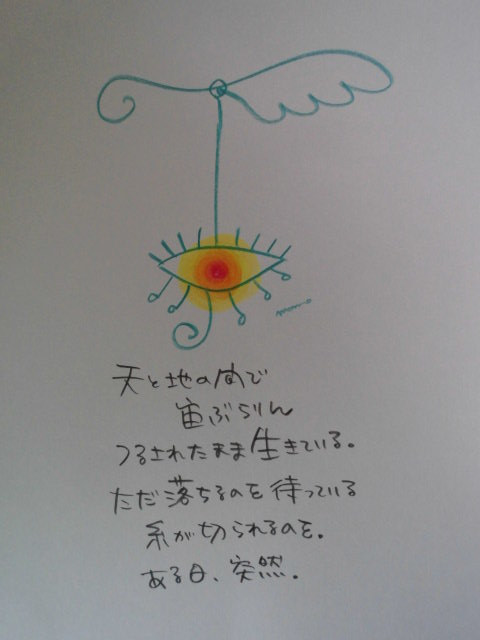 天と地の間で
宙ぶらりん
つるされたまま生きている。
ただ落ちるのを待っている
糸が切られるのを。
ある日、突然。
momo